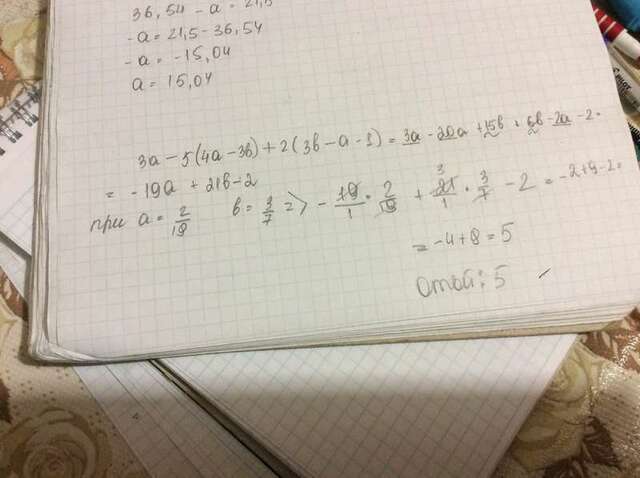 36,54 - a = 21,5
-a = 21,5 - 36,54
-a = -15,04
a = 15,04
3a - 5(4a - 3b) + 2(3b - a - 1) = 3a - 20a + 15b + 6b - 2a - 2 =
= -19a + 21b - 2
при a = 2/19 b = 3/7 => - 19/1 · 2/19 + 21/1 · 3/7 - 2 = -2+9-2=
3
= -4+9 = 5
Ответ: 5